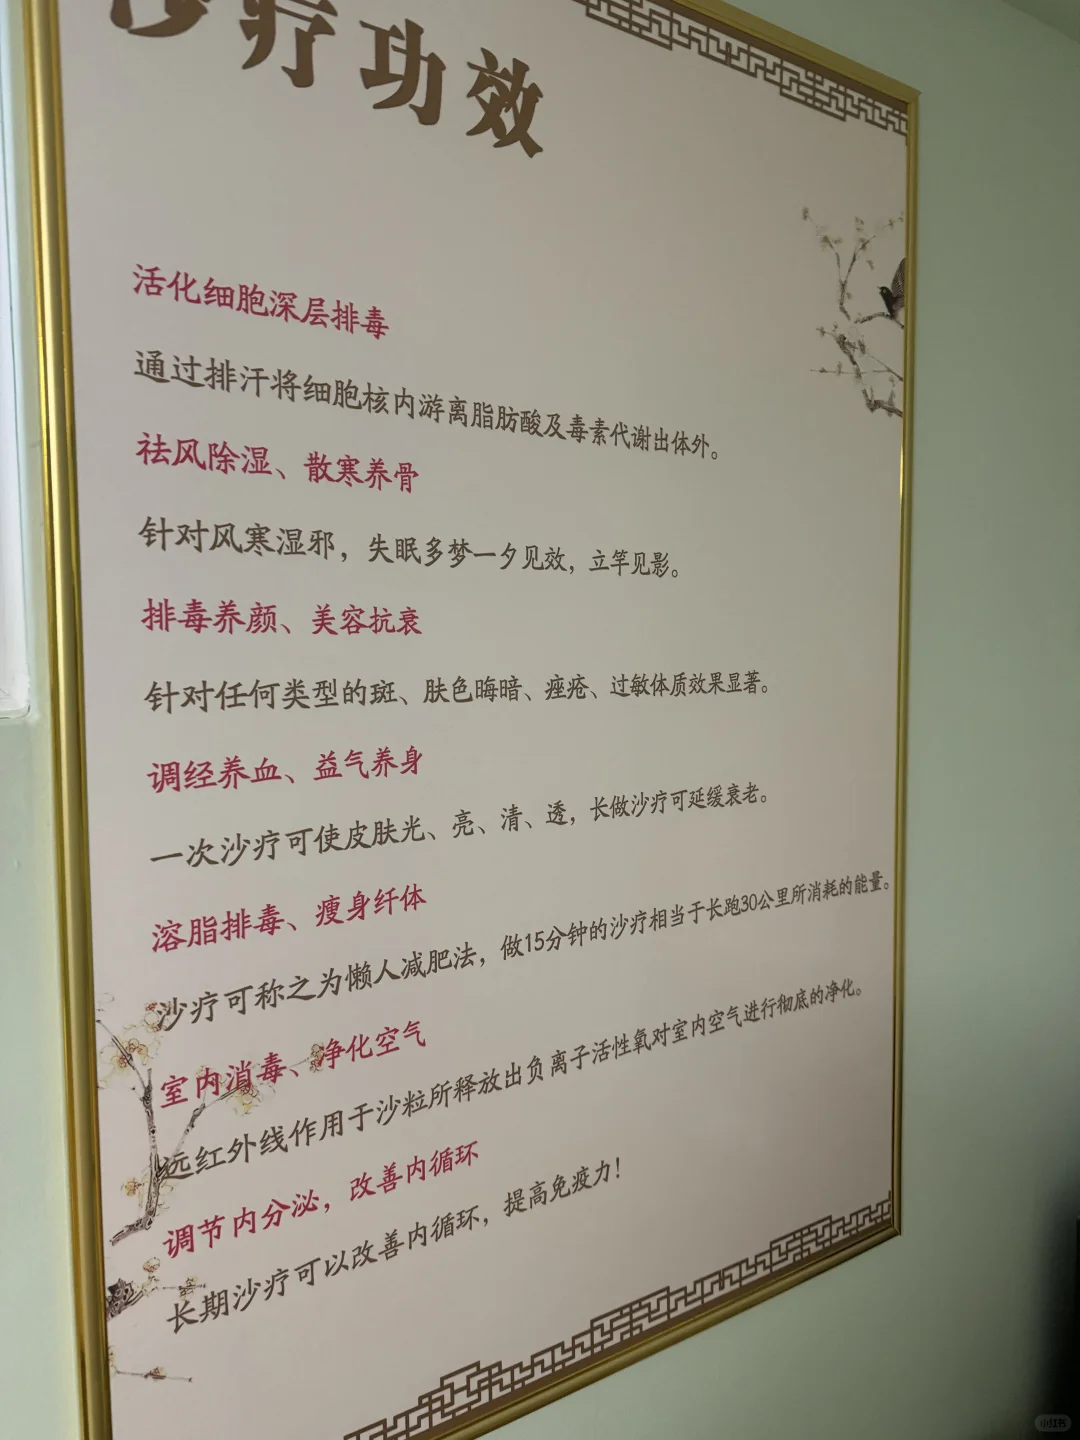 沙疗功效
活化细胞深层排毒
通过排汗将细胞核内游离脂肪酸及毒素代谢出体外。
祛风除湿、散寒养骨
针对风寒湿邪，失眠多梦一夕见效，立竿见影。
排毒养颜、美容抗衰
针对任何类型的斑、肤色晦暗、痤疮、过敏体质效果显著。
调经养血、益气养身
一次沙疗可使皮肤光、亮、清、透，长做沙疗可延缓衰老。
溶脂排毒、瘦身纤体
沙疗可称之为懒人减肥法，做15分钟的沙疗相当于长跑30公里所消耗的能量。
室内消毒、净化空气
远红外线作用于沙粒所释放出负离子活性氧对室内空气进行彻底的净化。
调节内分泌，改善内循环
长期沙疗可以改善内循环，提高免疫力！
小红书